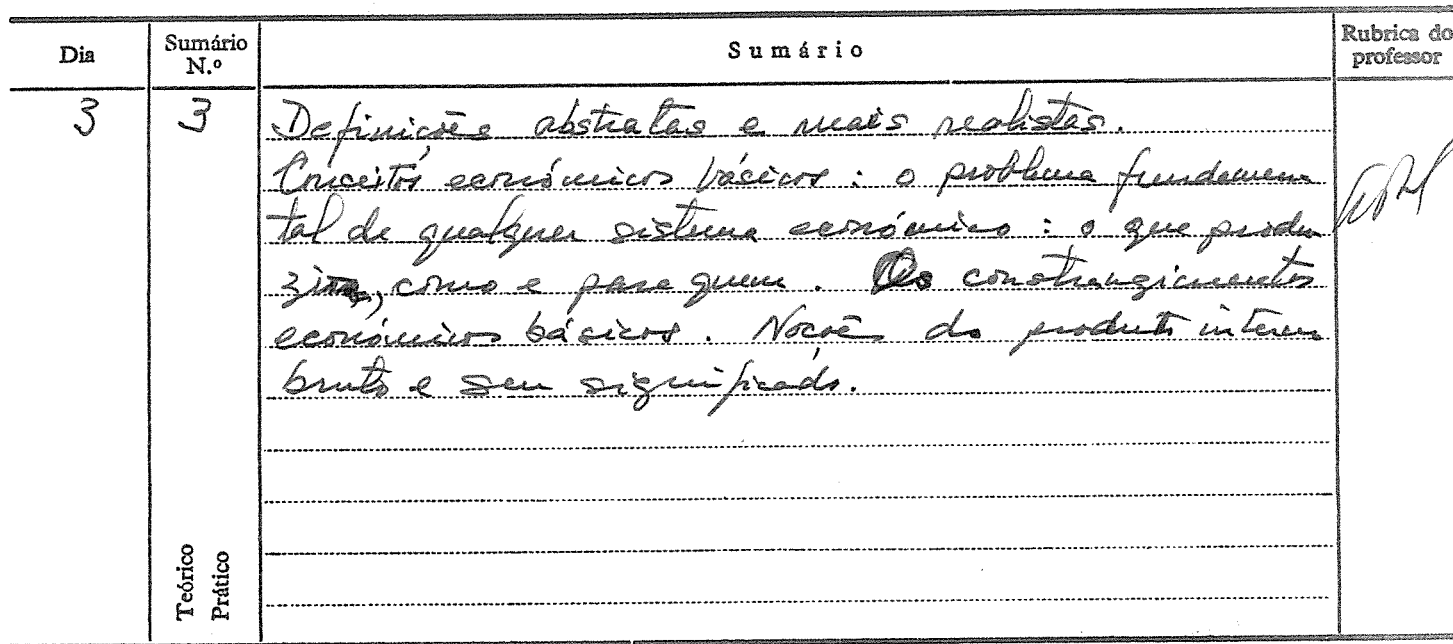 Dia
Sumário
N.º
Sumário
Rubrica do
professor
3
3
Definições abstratas e mais realistas.
Conceitos económicos básicos : o problema fundamen
tal de qualquer sistema económico : o que produ
zir, como e para quem. Os constrangimentos
económicos básicos. Noção do produto interno
bruto e seu significado.
Teórico
Prático